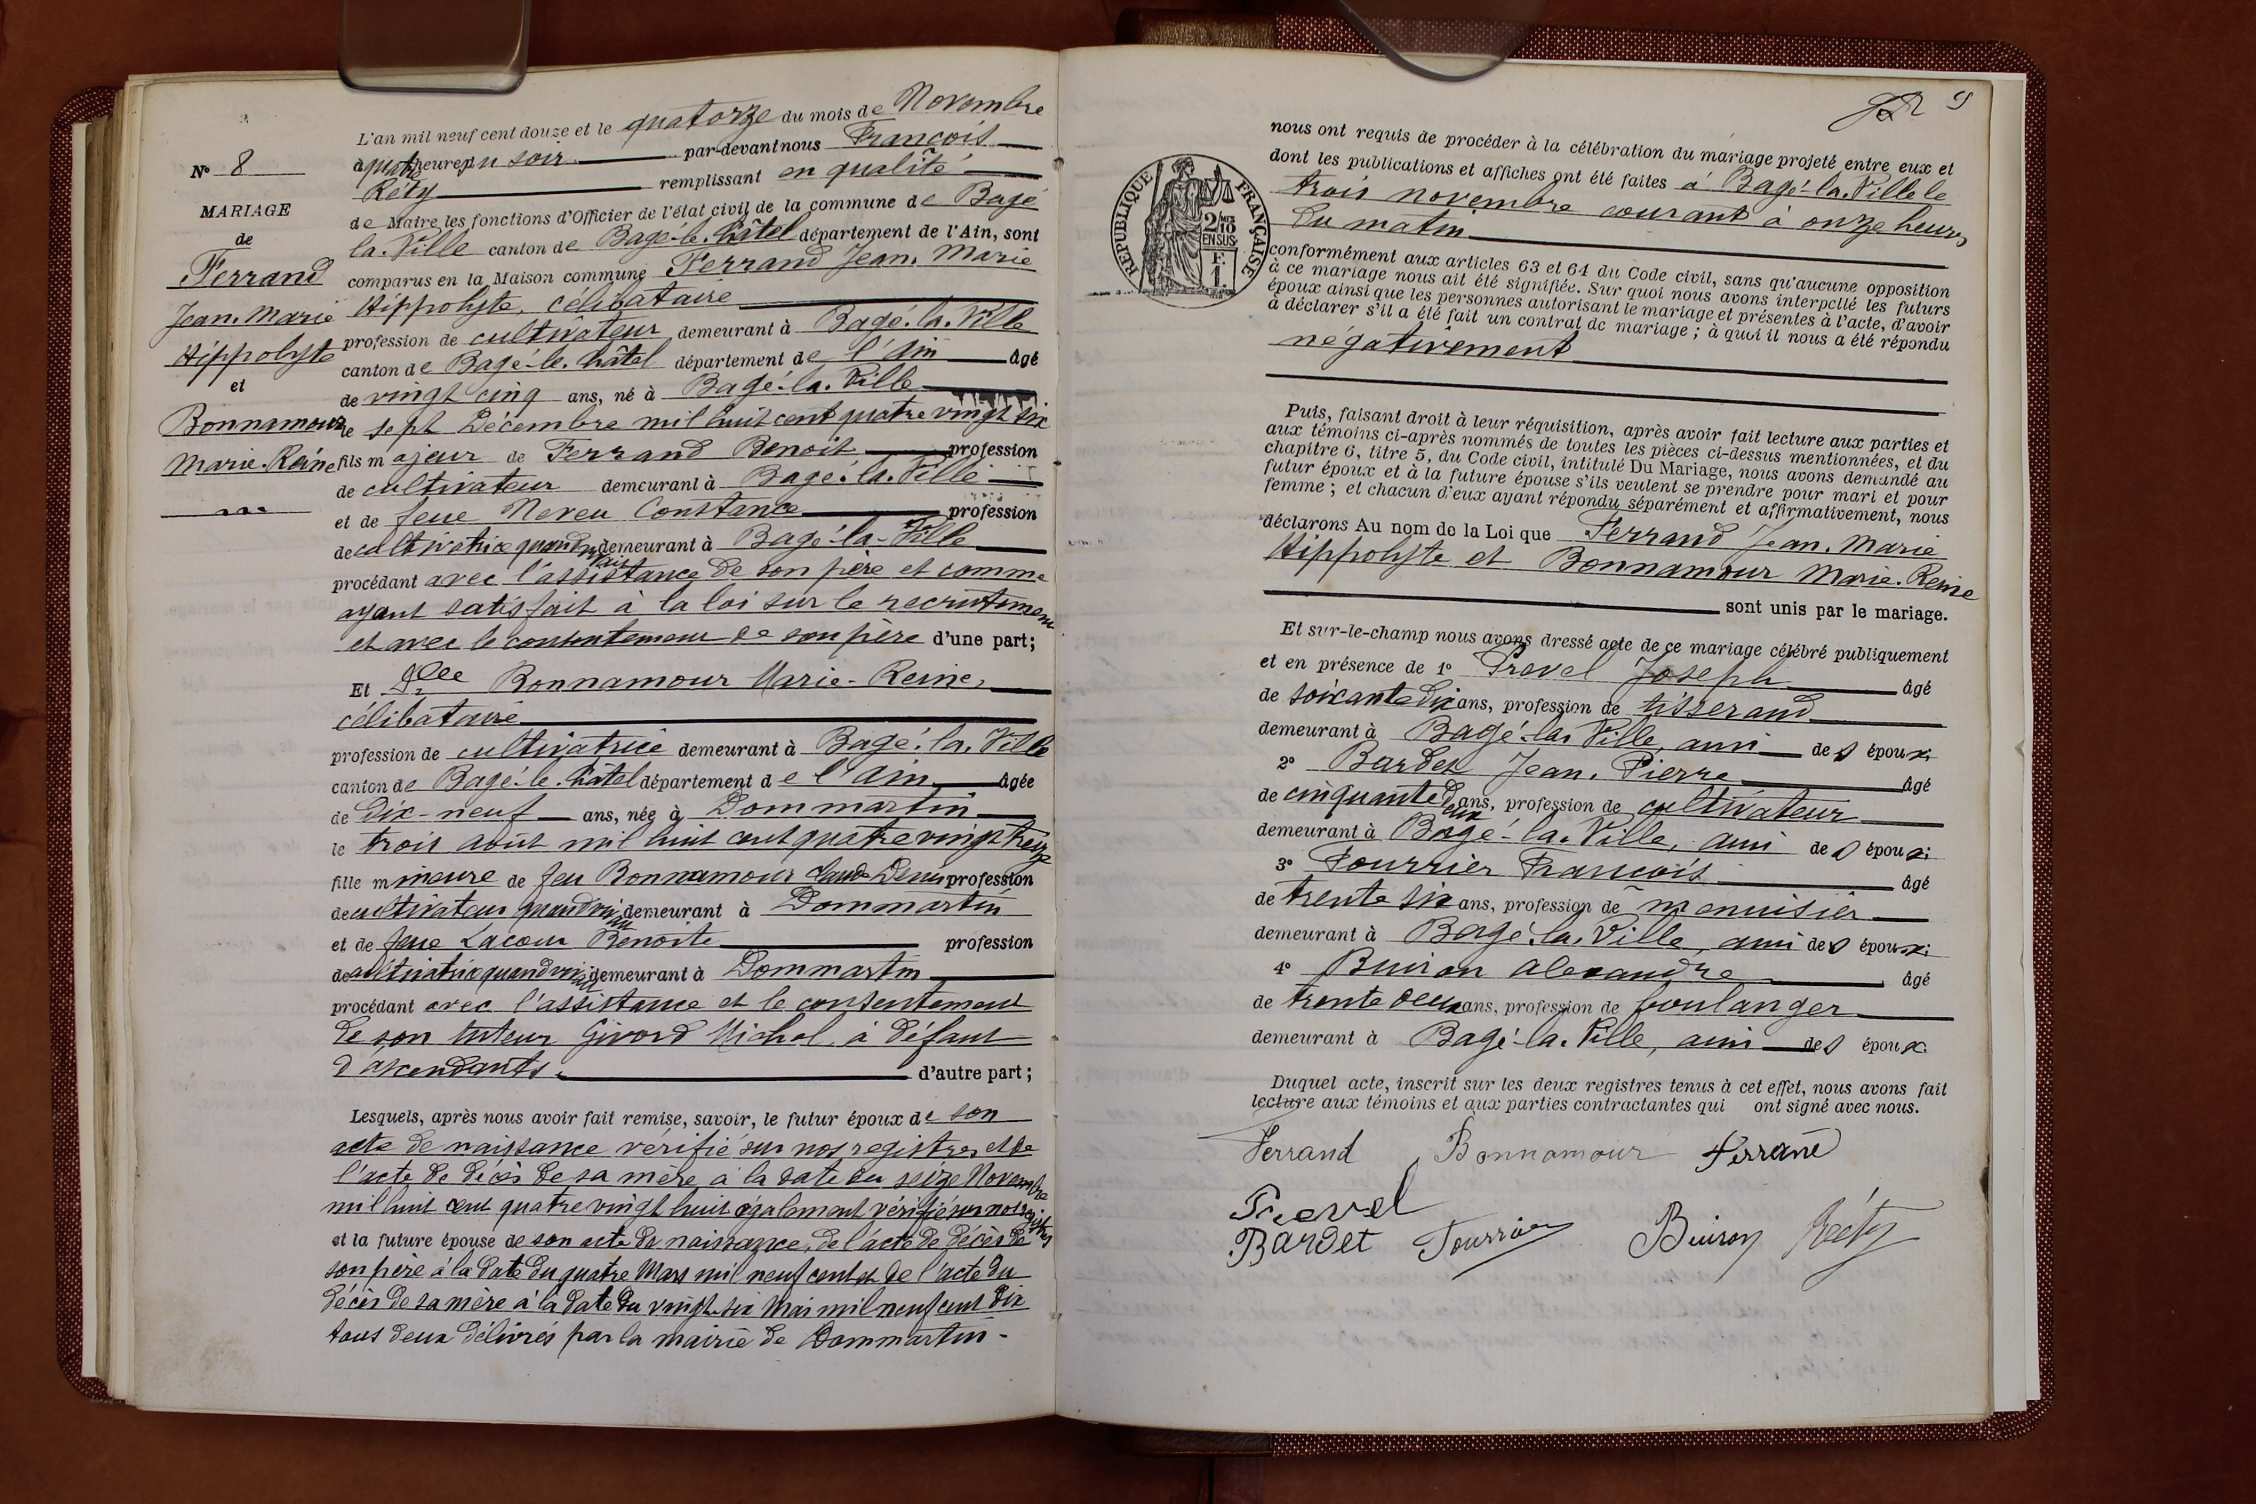 N° 8
MARIAGE
de
Ferrand
Jean-Marie
Hippolyte
et
Bonnamour
Marie-Reine
L'an mil neuf cent douze et le quatorze du mois de Novembre
à quatre heures du soir par-devant nous François
Réty remplissant en qualité
de Maire les fonctions d'Officier de l'état civil de la commune de Bagé
la-Ville canton de Bagé-le-Châtel département de l'Ain, sont
comparus en la Maison commune Ferrand Jean-Marie
Hippolyte, célibataire
profession de cultivateur demeurant à Bagé-la-Ville
canton de Bagé-le-Châtel département de l'Ain âgé
de vingt cinq ans, né à Bagé-la-Ville
le sept Décembre mil huit cent quatre vingt six
fils majeur de Ferrand Benoit profession
de cultivateur demeurant à Bagé-la-Ville
et de feue Neveu Constance profession
de cultivatrice quand vivait demeurant à Bagé-la-Ville
procédant avec l'assistance de son père et comme
ayant satisfait à la loi sur le recrutement
et avec le consentement de son père d'une part;
Et Dlle Bonnamour Marie-Reine,
célibataire
profession de cultivatrice demeurant à Bagé-la-Ville
canton de Bagé-le-Châtel département de l'Ain âgée
de dix-neuf ans, née à Dommartin
le trois août mil huit cent quatre vingt treize
fille mineure de feu Bonnamour Claude Denis profession
de cultivateur quand vivait demeurant à Dommartin
et de feue Lacour Benoite profession
de cultivatrice quand vivait demeurant à Dommartin
procédant avec l'assistance et le consentement
de son tuteur Givord Michel à défaut
d'ascendants. d'autre part;
Lesquels, après nous avoir fait remise, savoir, le futur époux de son
acte de naissance vérifié sur nos registres et de
l'acte de décès de sa mère à la date du seize Novembre
mil huit cent quatre vingt huit également vérifié sur nos registres
et la future épouse de son acte de naissance, de l'acte de décès de
son père à la date du quatre Mars mil neuf cent et de l'acte du
décès de sa mère à la date du vingt-six Mai mil neuf cent dix
tous deux délivrés par la mairie de Dommartin -
9
RÉPUBLIQUE FRANÇAISE
2/10 EN SUS
F. 1.
nous ont requis de procéder à la célébration du mariage projeté entre eux et
dont les publications et affiches ont été faites à Bagé-la-Ville le
trois novembre courant à onze heures
du matin
conformément aux articles 63 et 64 du Code civil, sans qu'aucune opposition
à ce mariage nous ait été signifiée. Sur quoi nous avons interpellé les futurs
époux ainsi que les personnes autorisant le mariage et présentes à l'acte, d'avoir
à déclarer s'il a été fait un contrat de mariage; à quoi il nous a été répondu
négativement
Puis, faisant droit à leur réquisition, après avoir fait lecture aux parties et
aux témoins ci-après nommés de toutes les pièces ci-dessus mentionnées, et du
chapitre 6, titre 5, du Code civil, intitulé Du Mariage, nous avons demandé au
futur époux et à la future épouse s'ils veulent se prendre pour mari et pour
femme; et chacun d'eux ayant répondu séparément et affirmativement, nous
déclarons Au nom de la Loi que Ferrand Jean-Marie
Hippolyte et Bonnamour Marie-Reine
sont unis par le mariage.
Et sur-le-champ nous avons dressé acte de ce mariage célébré publiquement
et en présence de 1° Prevel Joseph âgé
de soixante dix ans, profession de tisserand
demeurant à Bagé-la-Ville, ami des époux;
2° Bardet Jean-Pierre âgé
de cinquante deux ans, profession de cultivateur
demeurant à Bagé-la-Ville, ami des époux;
3° Fourrier François âgé
de trente six ans, profession de menuisier
demeurant à Bagé-la-Ville, ami des époux;
4° Buiron Alexandre âgé
de trente deux ans, profession de boulanger
demeurant à Bagé-la-Ville, ami des époux.
Duquel acte, inscrit sur les deux registres tenus à cet effet, nous avons fait
lecture aux témoins et aux parties contractantes qui ont signé avec nous.
Ferrand Bonnamour Ferrand
Prevel
Bardet Fourrier Buiron Réty